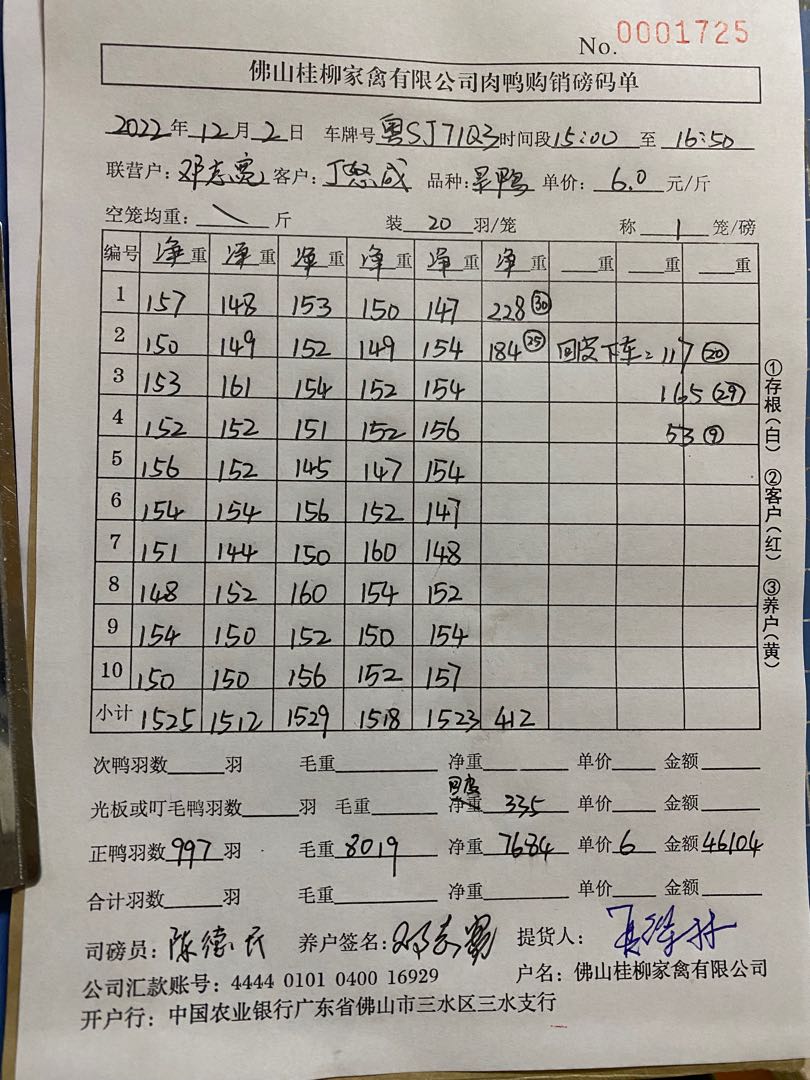 No. 0001725
佛山桂柳家禽有限公司肉鸭购销磅码单
2022年12月2日 车牌号粤SJ71Q3时间段15:00至16:50
联营户: 邓志 客户: 丁 成 品种: 鸭 单价: 6.0 元/斤
空笼均重: \ 斤 装 20 羽/笼 称 1 笼/磅
编号 净重 净重 净重 净重 净重 净重 重 重 重
1 157 148 153 150 147 228 (30)
2 150 149 152 149 154 184 (25) 回皮下车: 117 (20)
3 153 161 154 152 154 165 (29)
4 152 152 151 152 156 53 (9)
5 156 152 145 147 154
6 154 154 156 152 147
7 151 144 150 160 148
8 148 152 160 154 152
9 154 150 152 150 154
10 150 150 156 152 157
小计 1525 1512 1529 1518 1523 412
①存根(白) ②客户(红) ③养户(黄)
次鸭羽数 羽 毛重 净重 单价 金额
回皮
光板或叮毛鸭羽数 羽 毛重 净重 335 单价 金额
正鸭羽数 997 羽 毛重 8019 净重 7684 单价 6 金额 46104
合计羽数 羽 毛重 净重 单价 金额
司磅员: 陈德民 养户签名: 邓志 提货人:
公司汇款账号: 4444 0101 0400 16929 户名: 佛山桂柳家禽有限公司
开户行: 中国农业银行广东省佛山市三水区三水支行